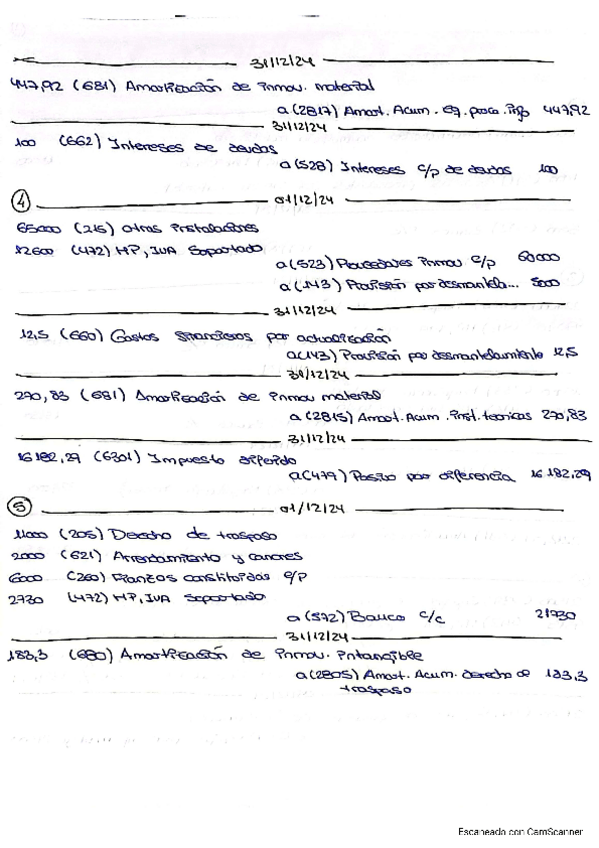 31/12/24
447,92 (681) Amortización de inmov. material
a (2817) Amort. Acum. Eq. proce. info 447,92
31/12/24
100 (662) Intereses de deudas
a (528) Intereses c/p de deudas 100
4 01/12/24
65000 (215) otras instalaciones
12600 (472) HP, IVA Soportado
a (523) Proveedores inmov c/p 60000
a (143) Provisión por desmantela... 5000
31/12/24
12,5 (660) Gastos financieros por actualización
a (143) Provisión por desmantelamiento 12,5
31/12/24
290,83 (681) Amortización de inmov material
a (2815) Amort. Acum. Inst. tecnicas 290,83
31/12/24
16182,29 (6301) Impuesto diferido
a (479) Pasivo por diferencia 16.182,29
5 01/12/24
11000 (205) Derecho de traspaso
2000 (621) Arrendamiento y canones
6000 (260) Fianzas constituidas c/p
2730 (472) HP, IVA soportado
a (572) Banco c/c 21730
31/12/24
183,3 (680) Amortización de inmov. intangible
a (2805) Amort. Acum. derecho de 183,3
traspaso
Escaneado con CamScanner